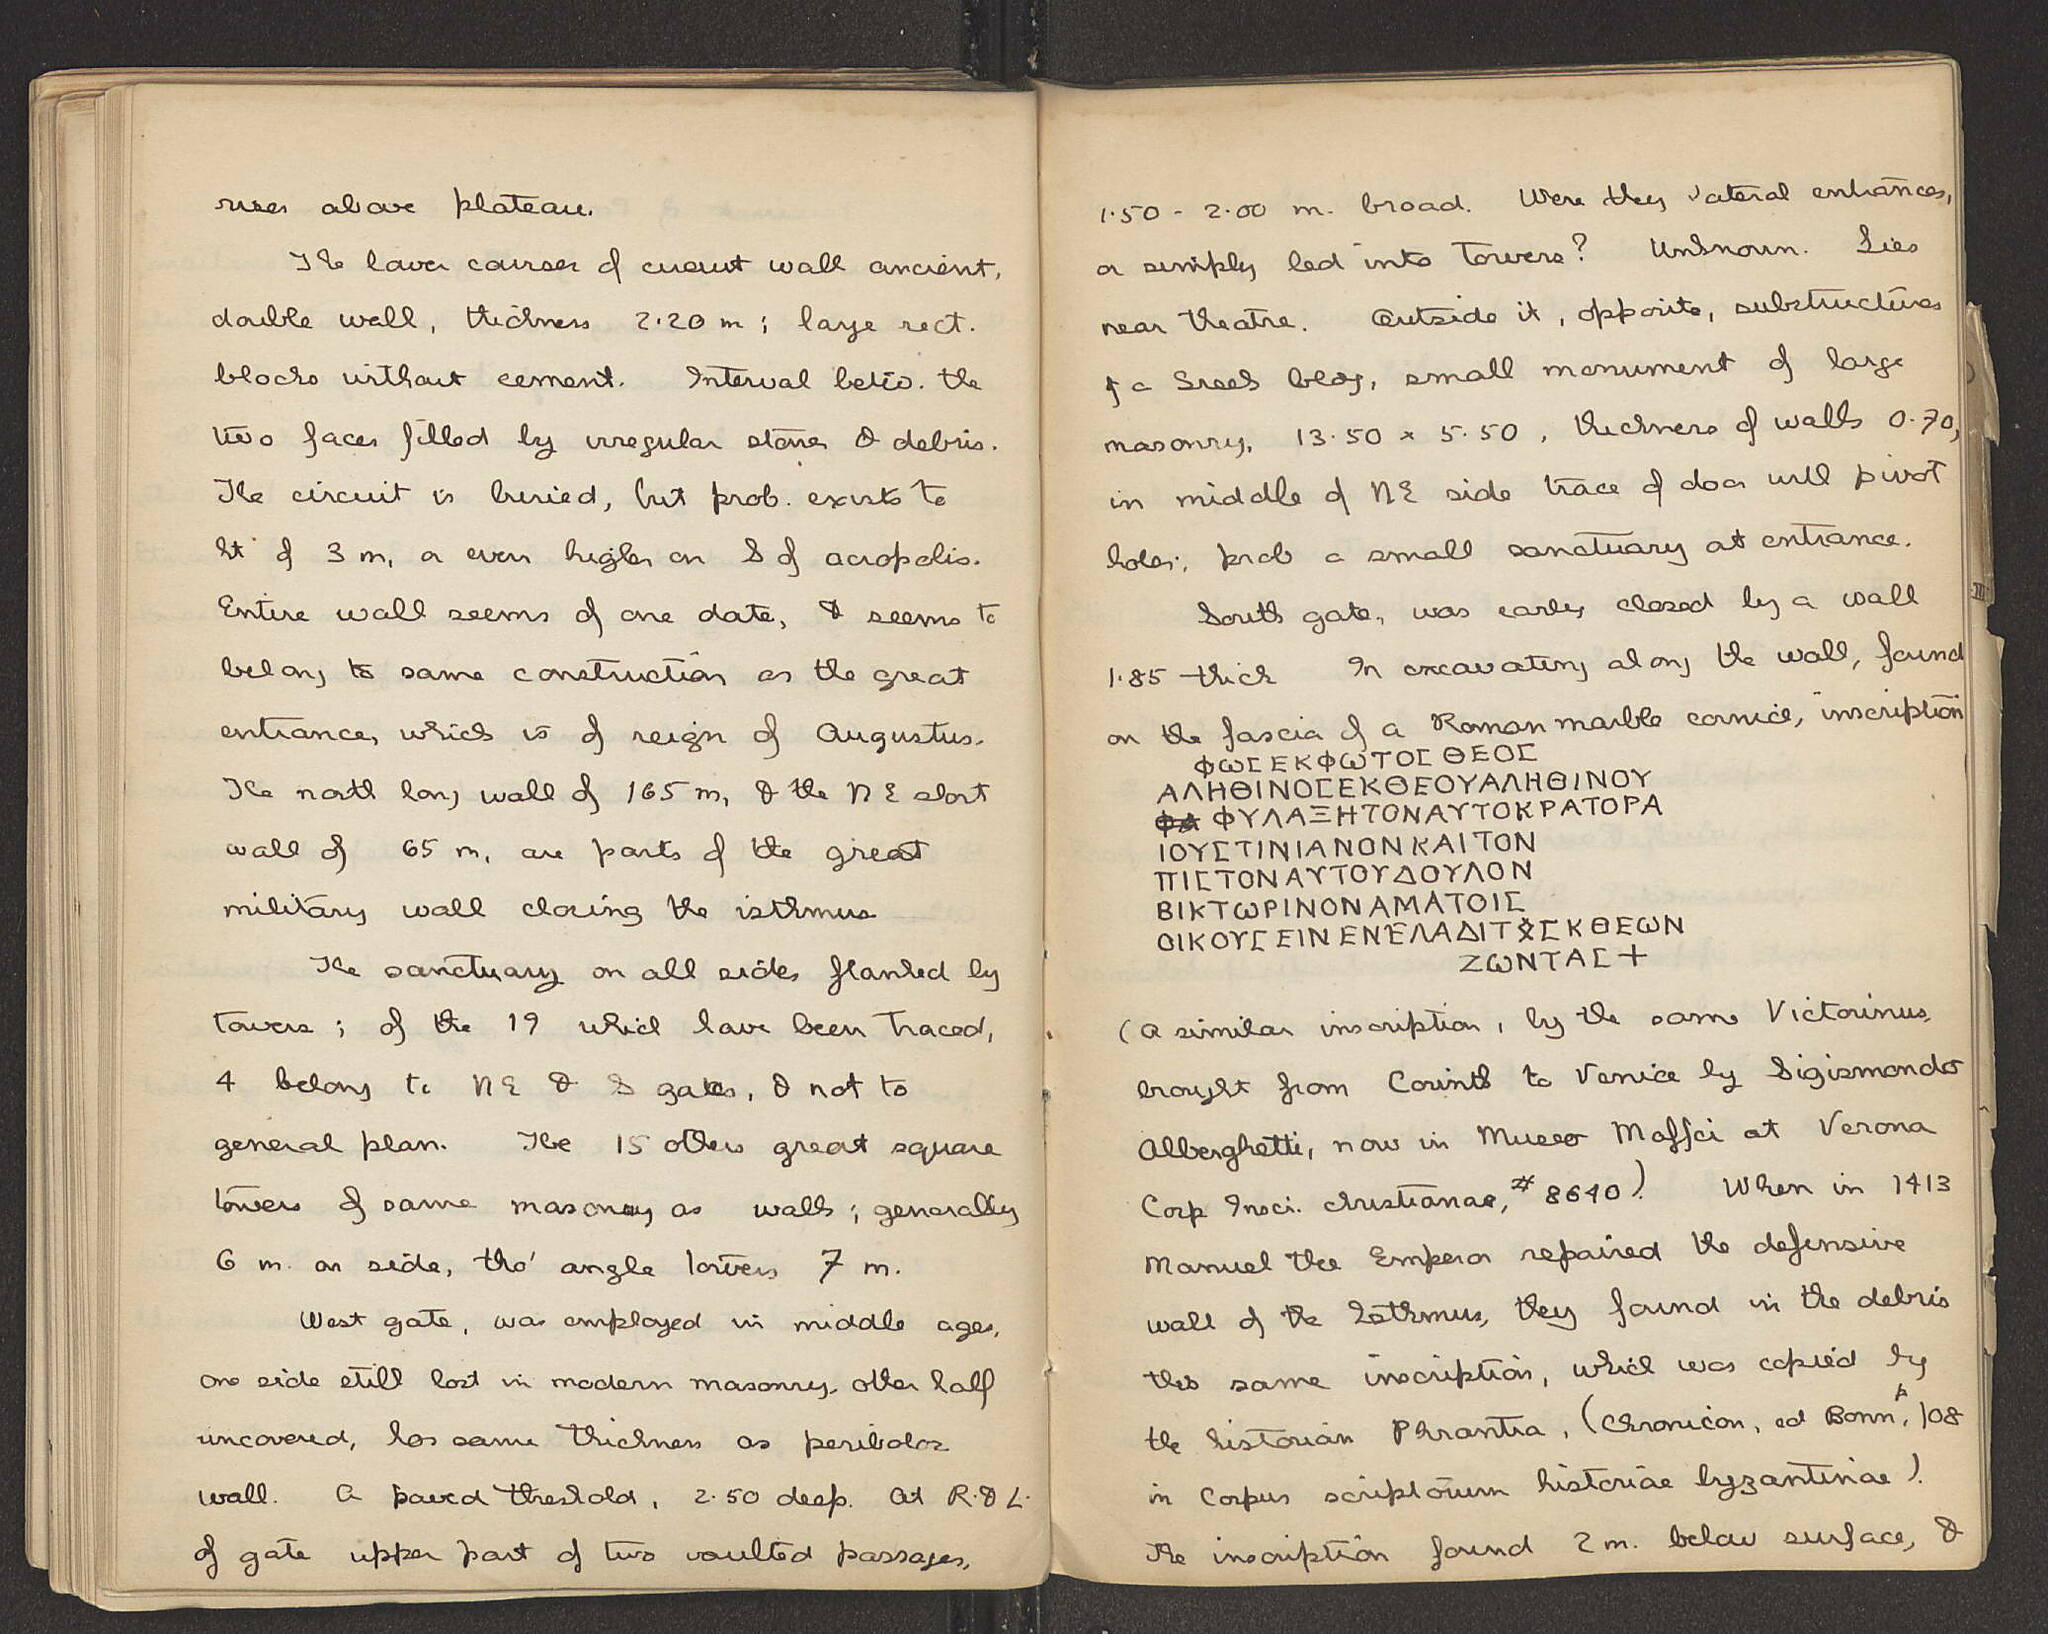 rises above plateau.
The lower courses of circuit wall ancient,
double wall, thickness 2.20 m; large rect.
blocks without cement. Interval betw. the
two faces filled by irregular stones & debris.
The circuit is buried, but prob. exists to
ht of 3 m, or even higher on S of acropolis.
Entire wall seems of one date, & seems to
belong to same construction as the great
entrance, which is of reign of Augustus.
The north long wall of 165 m, & the NE short
wall of 65 m, are parts of the great
military wall closing the isthmus
The sanctuary on all sides flanked by
towers; of the 19 which have been traced,
4 belong to NE & S gates, & not to
general plan. The 15 others great square
towers of same masonry as walls; generally
6 m. on side, tho' angle towers 7 m.
West gate, was employed in middle ages,
one side still lost in modern masonry, other half
uncovered, has same thickness as peribolos
wall. A paved threshold, 2.50 deep. At R. & L.
of gate upper part of two vaulted passages,
1.50 - 2.00 m. broad. Were they lateral entrances,
or simply led into towers? Unknown. Lies
near theatre. Outside it, opposite, substructures
of a Greek bldg, small monument of large
masonry, 13.50 x 5.50, thickness of walls 0.70,
in middle of NE side trace of door with pivot
holes; prob a small sanctuary at entrance.
South gate, was early closed by a wall
1.85 thick In excavating along the wall, found
on the fascia of a Roman marble cornice, inscription
ΦωΣ ΕΚ ΦωΤΟΣ ΘΕΟΣ
ΑΛΗΘΙΝΟΣ ΕΚ ΘΕΟΥ ΑΛΗΘΙΝΟΥ
ΦΥΛΑΞΗ ΤΟΝ ΑΥΤΟΚΡΑΤΟΡΑ
ΙΟΥΣΤΙΝΙΑΝΟΝ ΚΑΙ ΤΟΝ
ΠΙΣΤΟΝ ΑΥΤΟΥ ΔΟΥΛΟΝ
ΒΙΚΤωΡΙΝΟΝ ΑΜΑ ΤΟΙΣ
ΟΙΚΟΥΣΕΙΝ ΕΝ ΕΛΑΔΙ ΤȣΣ Κ ΘΕωΝ
ΖωΝΤΑΣ +
(A similar inscription, by the same Victorinus,
brought from Corinth to Venice by Sigismondo
Alberghetti, now in Museo Maffei at Verona
Corp Insci. christianae, # 8640). When in 1413
Manuel the Emperor repaired the defensive
wall of the Isthmus, they found in the debris
this same inscription, which was copied by
the historian Phrantza, (Chronicon, ed Bonn, p 108
in Corpus scriptorum historiae byzantinae).
The inscription found 2 m. below surface, &